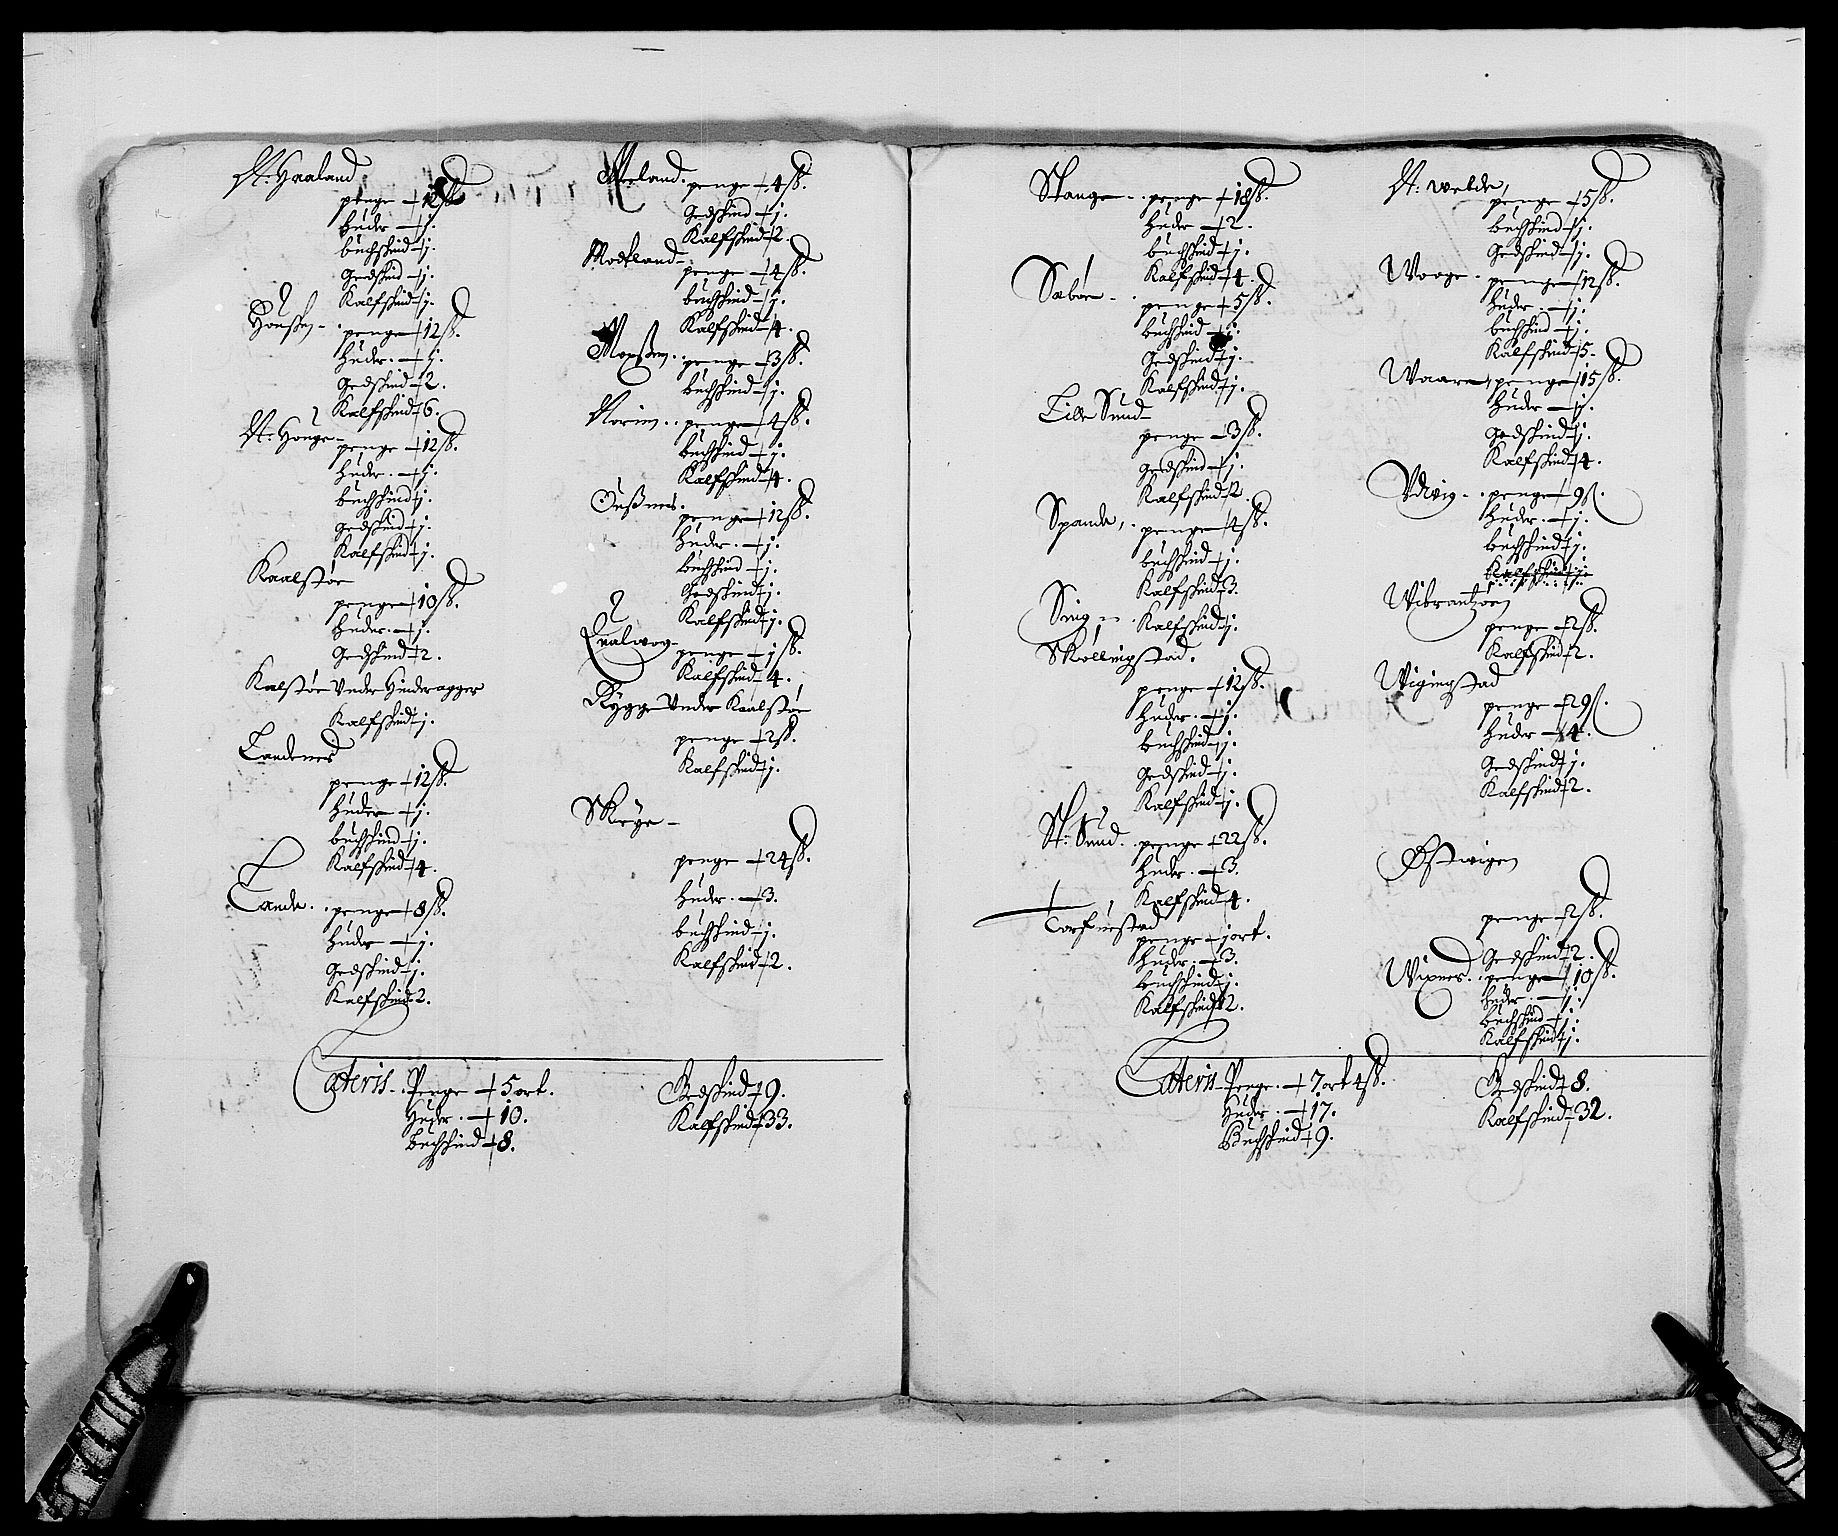 St: Haaland
penge – 12 ß.
huder – j.
buchskind – j.
Gedskind – j.
Kalfskind – j.
Housken –
penge – 12 ß.
huder – j.
Gedskind – 2.
Kalfskind – 6.
St: Houge –
penge – 12 ß.
huder – j.
buchskind j.
gedskind – j.
Kalfskind – j.
Kaalstøe
penge – 10 ß.
huder – j.
Gedskind – 2.
Kalstøe Under Hinderagger
Kalfskind – j.
Landenes
penge – 12 ß.
huder – j.
buchskind – j.
Kalfskind – 4.
Lande. penge – 8 ß.
huder – j.
Gedskind – j.
Kalfskind – 2.
Meland. penge – 4 ß.
Gedskind – j.
Kalfskind – 2.
Modland –
penge – 4 ß.
buchskind – j.
Kalfskind – 4.
penge – 3 ß.
buchskind – j.
Norim. penge – 4 ß.
buchskind – j.
Kalfskind – 4.
penge – 12 ß.
huder – j.
buchskind – j.
Gedskind – j.
Kalfskind – j.
Qualwog – penge – j ß.
Kalfskind – 4.
Rygge Under Kaalstøe
penge – 2 ß.
Kalfskind – j.
Skrye –
penge – 24 ß.
huder – 3.
buchskind – j.
Kalfskind – 2.
Lateris – Penge – 5 ort.
Huder – 10.
Buchskind – 8.
Gedskind – 9.
Kalfskind – 33.
Stange – penge – 18 ß.
huder – 2.
buchskind – j.
Kalfskind – 4.
Sæbøe –
penge – 5 ß.
buchskind – j.
Gedskind – j.
Kalfskind – j.
Lille Sund –
penge – 3 ß.
Gedskind – j.
Kalfskind – 2.
Spande, penge – 4 ß.
buchskind – j.
Kalfskind – 3.
Sing – Kalfskind – j.
Skøllingstad.
penge – 12 ß.
huder – j.
buchskind – j.
Gedskind – j.
Kalfskind – j.
St: Sund. penge – 22 ß.
huder – 3.
Kalfskind – 4.
Torfuestad
penge – j ort.
huder – 3.
buchskind – j.
Kalfskind – 2.
St: Welde,
penge – 5 ß.
buchskind – j.
Gedskind – j.
Woge – penge – 12 ß.
huder – j.
buchskind – j.
Kalfskind – 5 –
Waare, penge – 15 ß.
huder – j.
Gedskind – j.
Kalfskind – 4.
Udvig – penge – 9 ß.
huder – j.
buchskind – j.
Kalfskind – j.
Wibrantzøen
penge – 2 ß.
Kalfskind – 2.
Wigingstad
penge – 29 ß.
huder – 4.
Gedskind – j.
Kalfskind – 2.
Østwigen
penge – 2 ß.
Gedskind – 2.
Wixnes. penge – 10 ß.
huder – j.
buchskind – j.
Kalfskind – j.
Lateris – Penge – 7 ort 4 ß.
Huder – 17.
Buchskind – 9.
Gedskind – 8.
Kalfskind – 32.